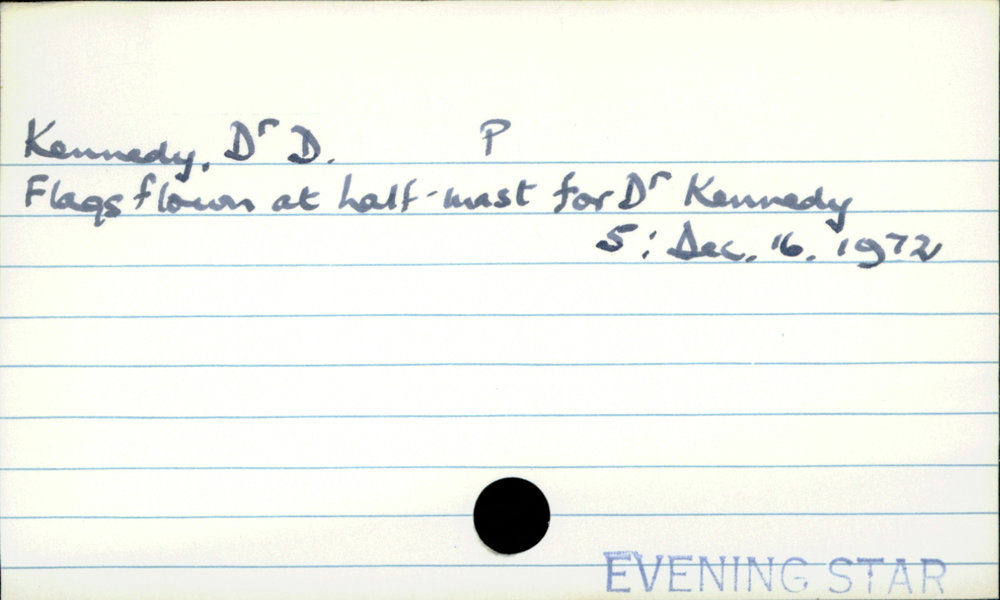 Kennedy, Dr D. P
Flags flown at half-mast for Dr Kennedy
5: Dec. 16. 1972
EVENING STAR